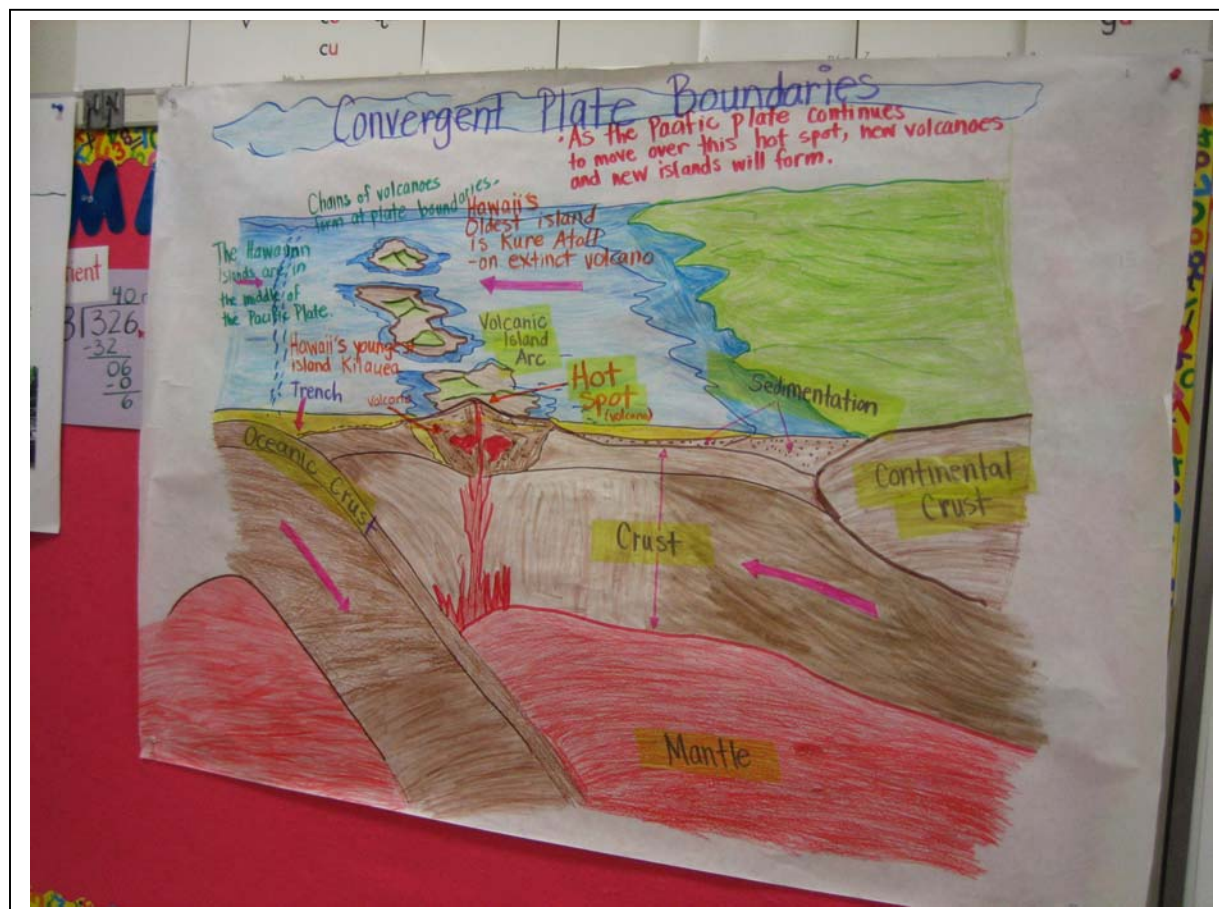 cu
Convergent Plate Boundaries
• As the Pacific plate continues
to move over this hot spot, new volcanoes
and new islands will form.
Chains of volcanoes
form at plate boundaries.
Hawaii's
Oldest island
is Kure Atoll
-an extinct volcano
The Hawaiian
Islands are in
the middle of
the Pacific Plate.
Volcanic
Island
Arc
Hawaii's youngest
island Kilauea
Trench
volcano
Hot
Spot
(volcano)
Sedimentation
Oceanic Crust
Continental
Crust
Crust
Mantle
40
326
-32
06
-0
6